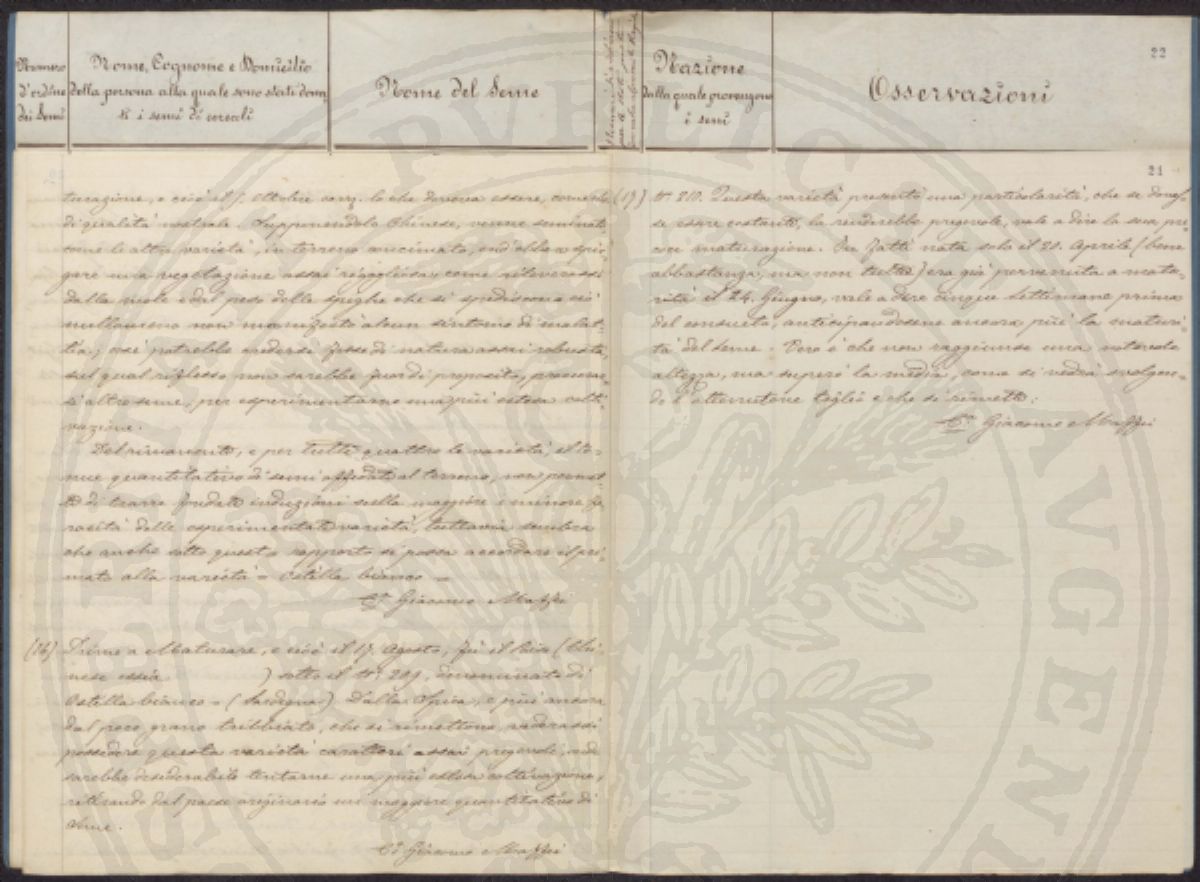 Numero d'ordine dei Semi
Nome, Cognome e Domicilio della persona alla quale sono stati donati i semi di cereali
Nome del Seme
Nazione dalla quale provengono i semi
Osservazioni
22
21
turazione, e cioè il 1. Ottobre corr. lo che doveva essere,
di qualità nostrale. Supponendolo Chinese, venne seminato
come le altre varietà, in terreno concimato, ond'ebbe a spie-
gare una vegetazione assai rigogliosa, come rileverassi
dalla mole e dal peso delle spighe che si spediscono e ciò
nullameno non manifestò alcun sintomo di malat-
tia, così potrebbe credersi fosse di natura assai robusta,
sul qual riflesso non sarebbe fuor di proposito, procurar-
si altro seme, per esperimentarne una più estesa colti-
vazione.
Del rimanente, e per tutte quattro le varietà, il te-
nue quantitativo di semi affidato al terreno, non permet-
te di trarre fondate induzioni sulla maggiore o minore fe-
racità delle esperimentate varietà, tuttavia sembra
che anche sotto questo rapporto si possa accordare il pri-
mato alla varietà = Ostilla bianco =
Giacomo Maffei
(16) Primo a Maturare, e cioè il 17. Agosto, fu il Riso (Chi-
nese ossia ) sotto il N.º 209, denominato di
Ostilla bianco = (Sardegna). Dalla Spica, e più ancora
dal poco grano trebbiato, che si rimettono, vedrassi
possedere questa varietà caratteri assai pregevoli, onde
sarebbe desiderabile tentarne una più estesa coltivazione,
ritirando dal paese originario un maggiore quantitativo di
seme.
Giacomo Maffei
(17) N.º 210. Questa varietà presentò una particolarità, che se doves-
se essere costante, la renderebbe pregevole, vale a dire la sua pre-
coce maturazione. Di fatti nata solo il 20. Aprile (bene
abbastanza, ma non tutto) era già pervenuta a matu-
rità il 24. Giugno, vale a dire cinque settimane prima
del consueto, anticipandosene ancora più la maturi-
tà del seme. Vero è che non raggiunse una notevole
altezza, ma superò la media, come si vedrà svolgen-
do l'attorcione e che si rimette.
Giacomo Maffei